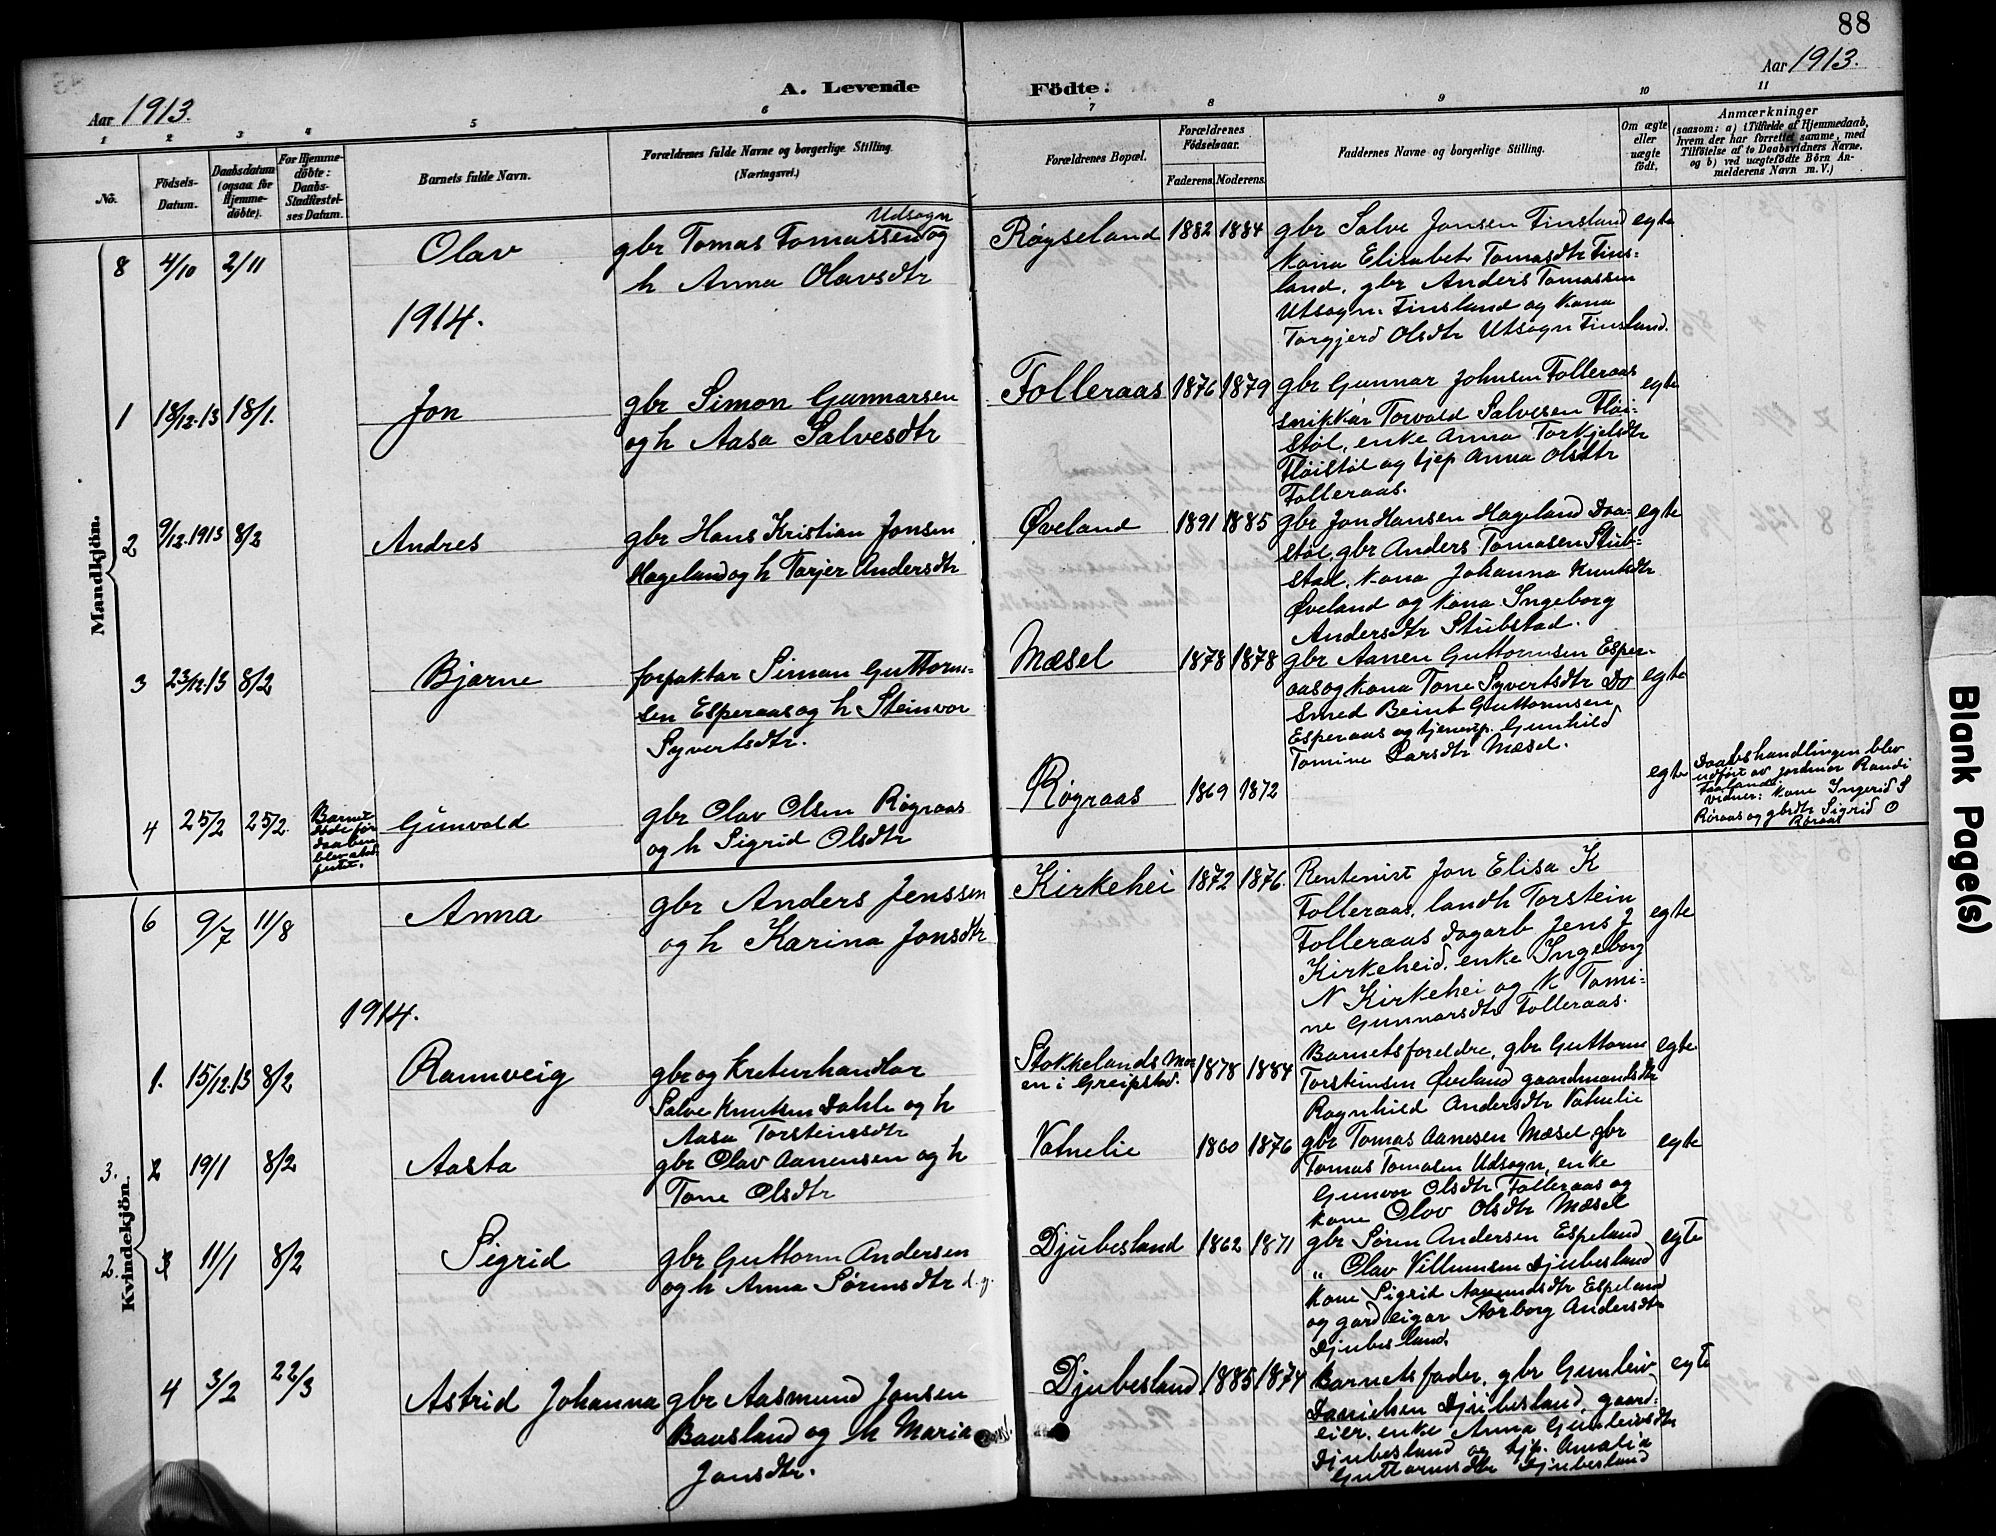 88
Aar 1913.
A. Levende Födte:
Aar 1913.
1 2 3 4 5 6 7 8 9 10 11
No.
Födsels-Datum.
Daabsdatum (ogsaa for Hjemmedöbte).
For Hjemmedöbte: Daabs-Stadfæstelses Datum.
Barnets fulde Navn.
Forældrenes fulde Navne og borgerlige Stilling.
(Næringsvei.)
Forældrenes Bopæl.
Forældrenes Födselsaar.
Faderens. Moderens.
Faddernes Navne og borgerlige Stilling.
Om ægte eller uægte födt.
Anmærkninger
(saasom: a) i Tilfælde af Hjemmedaab, hvem der har forrettet samme, med Tilföielse af to Daabsvidners Navne, og b) ved uægtefödte Börn Anmelderens Navn m. V.)
Mandkjön.
8 4/10 2/11 Olav
Udsogn
gbr Tomas Tomassen og
h Anna Olavsdtr
Røyseland 1882 1884
gbr Salve Jonsen Finsland
Kona Elisabet Tomasdtr Fins-
land, gbr Anders Tomassen
Utsogn. Finsland og Kona
Torgjerd Olsdtr Utsogn Finsland.
egte
1914.
1 18/12.13 18/1. Jon
gbr Simon Gunnarsen
og h Aasa Salvesdtr
Folleraas 1876 1879
gbr Gunnar Johnsen Folleraas
snikkar Torvald Salvesen Fløi-
støl, enke Anna Torkjelsdtr
Fløistøl og tjep Anna Olsdtr
Folleraas.
egte
2 9/12.1913 8/2 Andres
gbr Hans Kristian Jonsen
Hageland og h Torjer Andersdtr
Øveland 1891 1885
gbr Jon Hansen Hageland Daa-
støl, gbr Anders Tomasen Stub-
stad, Kona Johanna Knutsdtr
Øveland og Kona Ingeborg
Andersdtr Stubstad.
egte
3 23/12.13 8/2 Bjarne
forpaktar Simon Guttorm-
sen Esperaas og h Steinvor
Syvertsdtr.
Mæsel 1878 1878
gbr Aanen Guttormsen Esper-
aas og Kona Tone Syvertsdtr Do
Smed Beint Guttormsen
Esperaas og tjenerp. Gunhild
Tomine Larsdtr Mæsel.
egte
4 25/2 25/2
Barnet
døde før
daaben
blev stad-
festet.
Gunvald
gbr Olav Olsen Røgraas
og h Sigrid Olsdtr
Røgraas 1869 1872
egte
Daabshandlingen blev
udført av jordmor Randi
Faaland.
Vidner: Kone Ingerid S
Røraas og gbrdtr Sigrid O
Røraas
Kvindekjön.
6 9/7 11/8 Anna
gbr Anders Jenssen
og h Karina Jonsdtr
Kirkehei 1872 1876.
Rentenist Jon Elisa K
Folleraas, landh Torstein
Folleraas dagarb Jens J
Kirkeheid, enke Ingeborg
N Kirkehei og K Tomi-
ne Gunnarsdtr Folleraas.
egte
1914.
1. 15/12.13 8/2 Rannveig
gbr og Kreturhandlar
Salve Knutsen Dahle og h
Aasa Torsteinsdtr
Stokkelands Mo-
en i Greipstad. 1878 1884
Barnets foreldre, gbr Guttorm
Torsteinsen Øveland gaardmandsdtr
Ragnhild Andersdtr Vatnelie
egte
3. 2 19/1 8/2 Aasta
gbr Olav Aanensen og h
Tone Olsdtr
Vatnelie 1860 1876
gbr Tomas Aanesen Mæsel gbr
Tomas Tomasen Udsogn, enke
Gunvor Olsdtr Folleraas og
Kone Olav Olsdtr Mæsel
egte
2. 3 11/1 8/2 Sigrid
gbr Guttorm Andersen
og h Anna Sørensdtr d.y.
Djubesland 1862 1871
gbr Søren Andersen Espeland
" Olav Villumsen Djubesland
Kone Sigrid Aamundsdtr Espeland
og gardeigar Aasborg Andersdtr
Djubesland.
egte
4 3/2 22/3 Astrid Johanna
gbr Aasmund Jonsen
Bausland og h Maria
Jonsdtr.
Djubesland 1885 1874
Barnets fader, gbr Gunleiv
Danielsen Djubesland, gaard-
eier, enke Anna Gunleivsdtr
Djubesland og tjp. Amalia
Guttormsdtr Djubesland
egte
Blank Page(s)